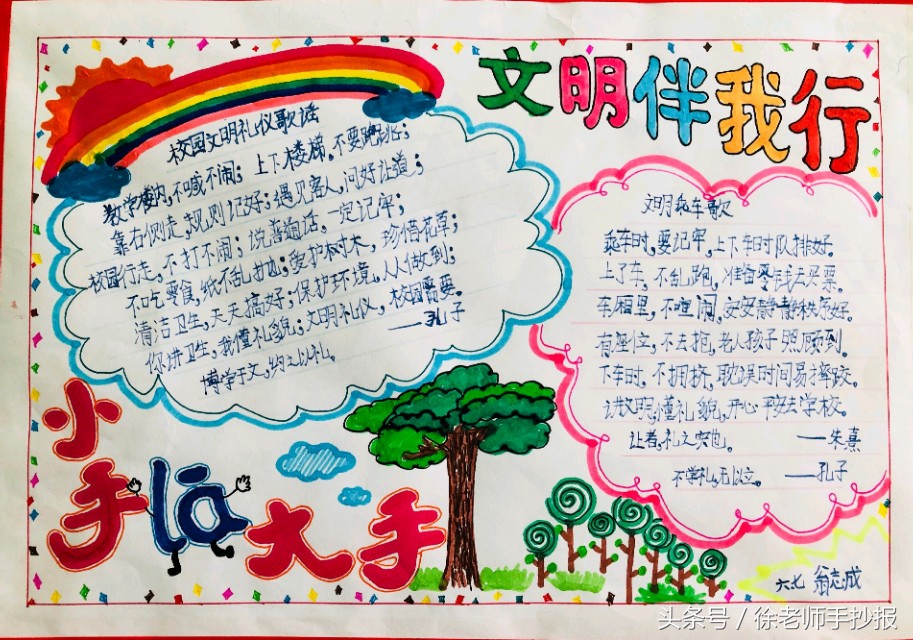 文明伴我行
校园文明礼仪歌谣
教学楼内,不喊不闹;上下楼梯,不要跑跳;
靠右侧走,规则记好;遇见客人,问好让道;
校园行走,不打不闹;说普通话,一定记牢;
不吃零食,纸不乱抛;爱护树木,珍惜花草;
清洁卫生,天天搞好;保护环境,人人做到;
你讲卫生,我懂礼貌;文明礼仪,校园需要。
博学于文,约之以礼。——孔子
文明乘车歌
乘车时,要记牢,上下车时队排好。
上了车,不乱跑,准备零钱去买票。
车厢里,不喧闹,安安静静秩序好。
有座位,不去抢,老人孩子照顾到。
下车时,不拥挤,耽误时间易摔跤。
讲文明,懂礼貌,开心平安去学校。
让者,礼之实也。——朱熹
不学礼,无以立。——孔子
小手拉大手
六七 翁志成
头条号/徐老师手抄报